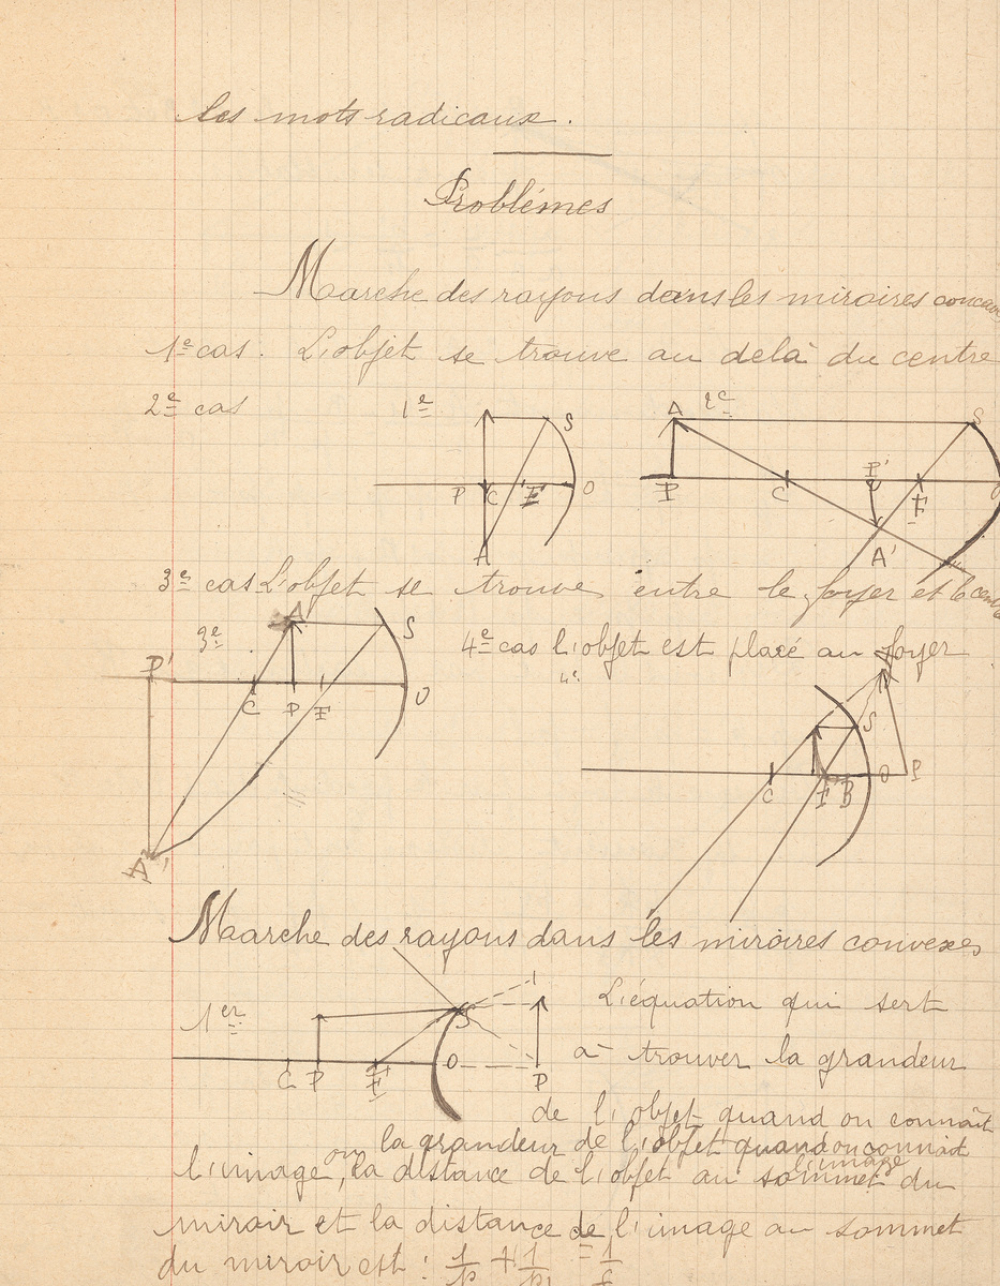 les mots radicaux.
Problémes
Marche des rayons dans les miroires concav
1e cas. L'objet se trouve au delà du centre
2e cas
1e
2e
S
P C F O
A
A S
P C P' F
A'
3e cas L'objet se trouve entre le foyer et le cen
3e
A S
P' C P F O
A'
4e cas l'objet est placé au foyer
4e
S
C F B O P
Marche des rayons dans les miroires convexes
1er
S
C P F O P
L'équation qui sert
à trouver la grandeur
de l'objet quand on connaît
ou la grandeur de l'objet quand on connait
l'image
l'image, la distance de l'objet au sommet du
miroir et la distance de l'image au sommet
du miroir est : 1/p + 1/p' = 1/f